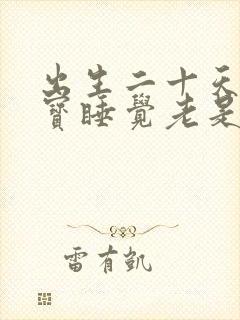 出生二十天
寶睡覺老是
雷有凱